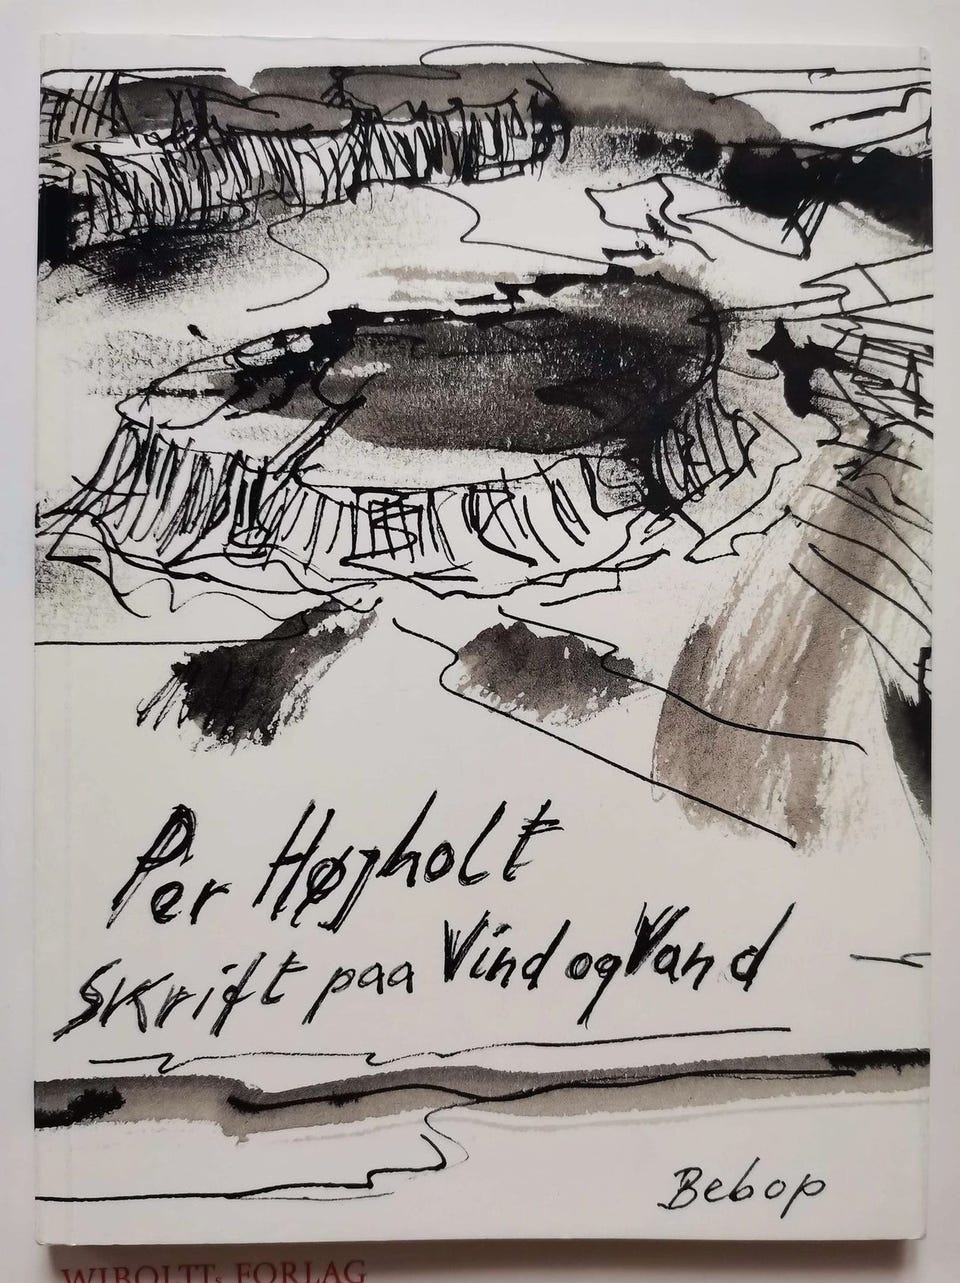 Per Højholt
Skrift paa Vind og Vand
Bebop
WIBOLTTs FORLAG